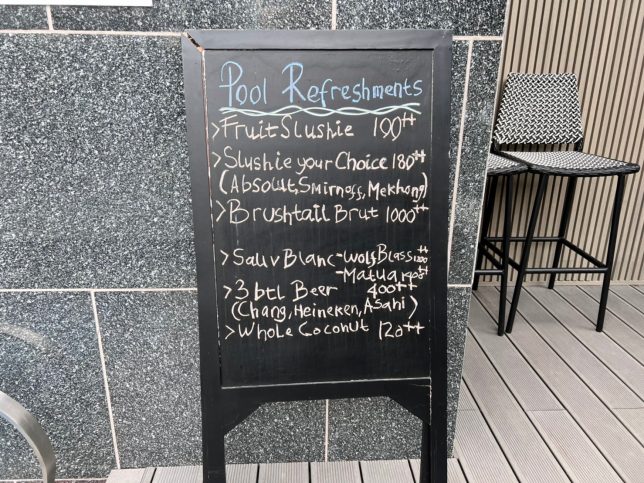 Pool Refreshments
>Fruit Slushie 100++
>Slushie your Choice 180++
(Absolut, Smirnoff, Mekhong)
>Brushtail Brut 1000++
>Sauv Blanc - Wolf Blass 1200++
- Matua ++
>3 btl Beer 400++
(Chang, Heineken, Asahi)
>Whole Coconut 120++